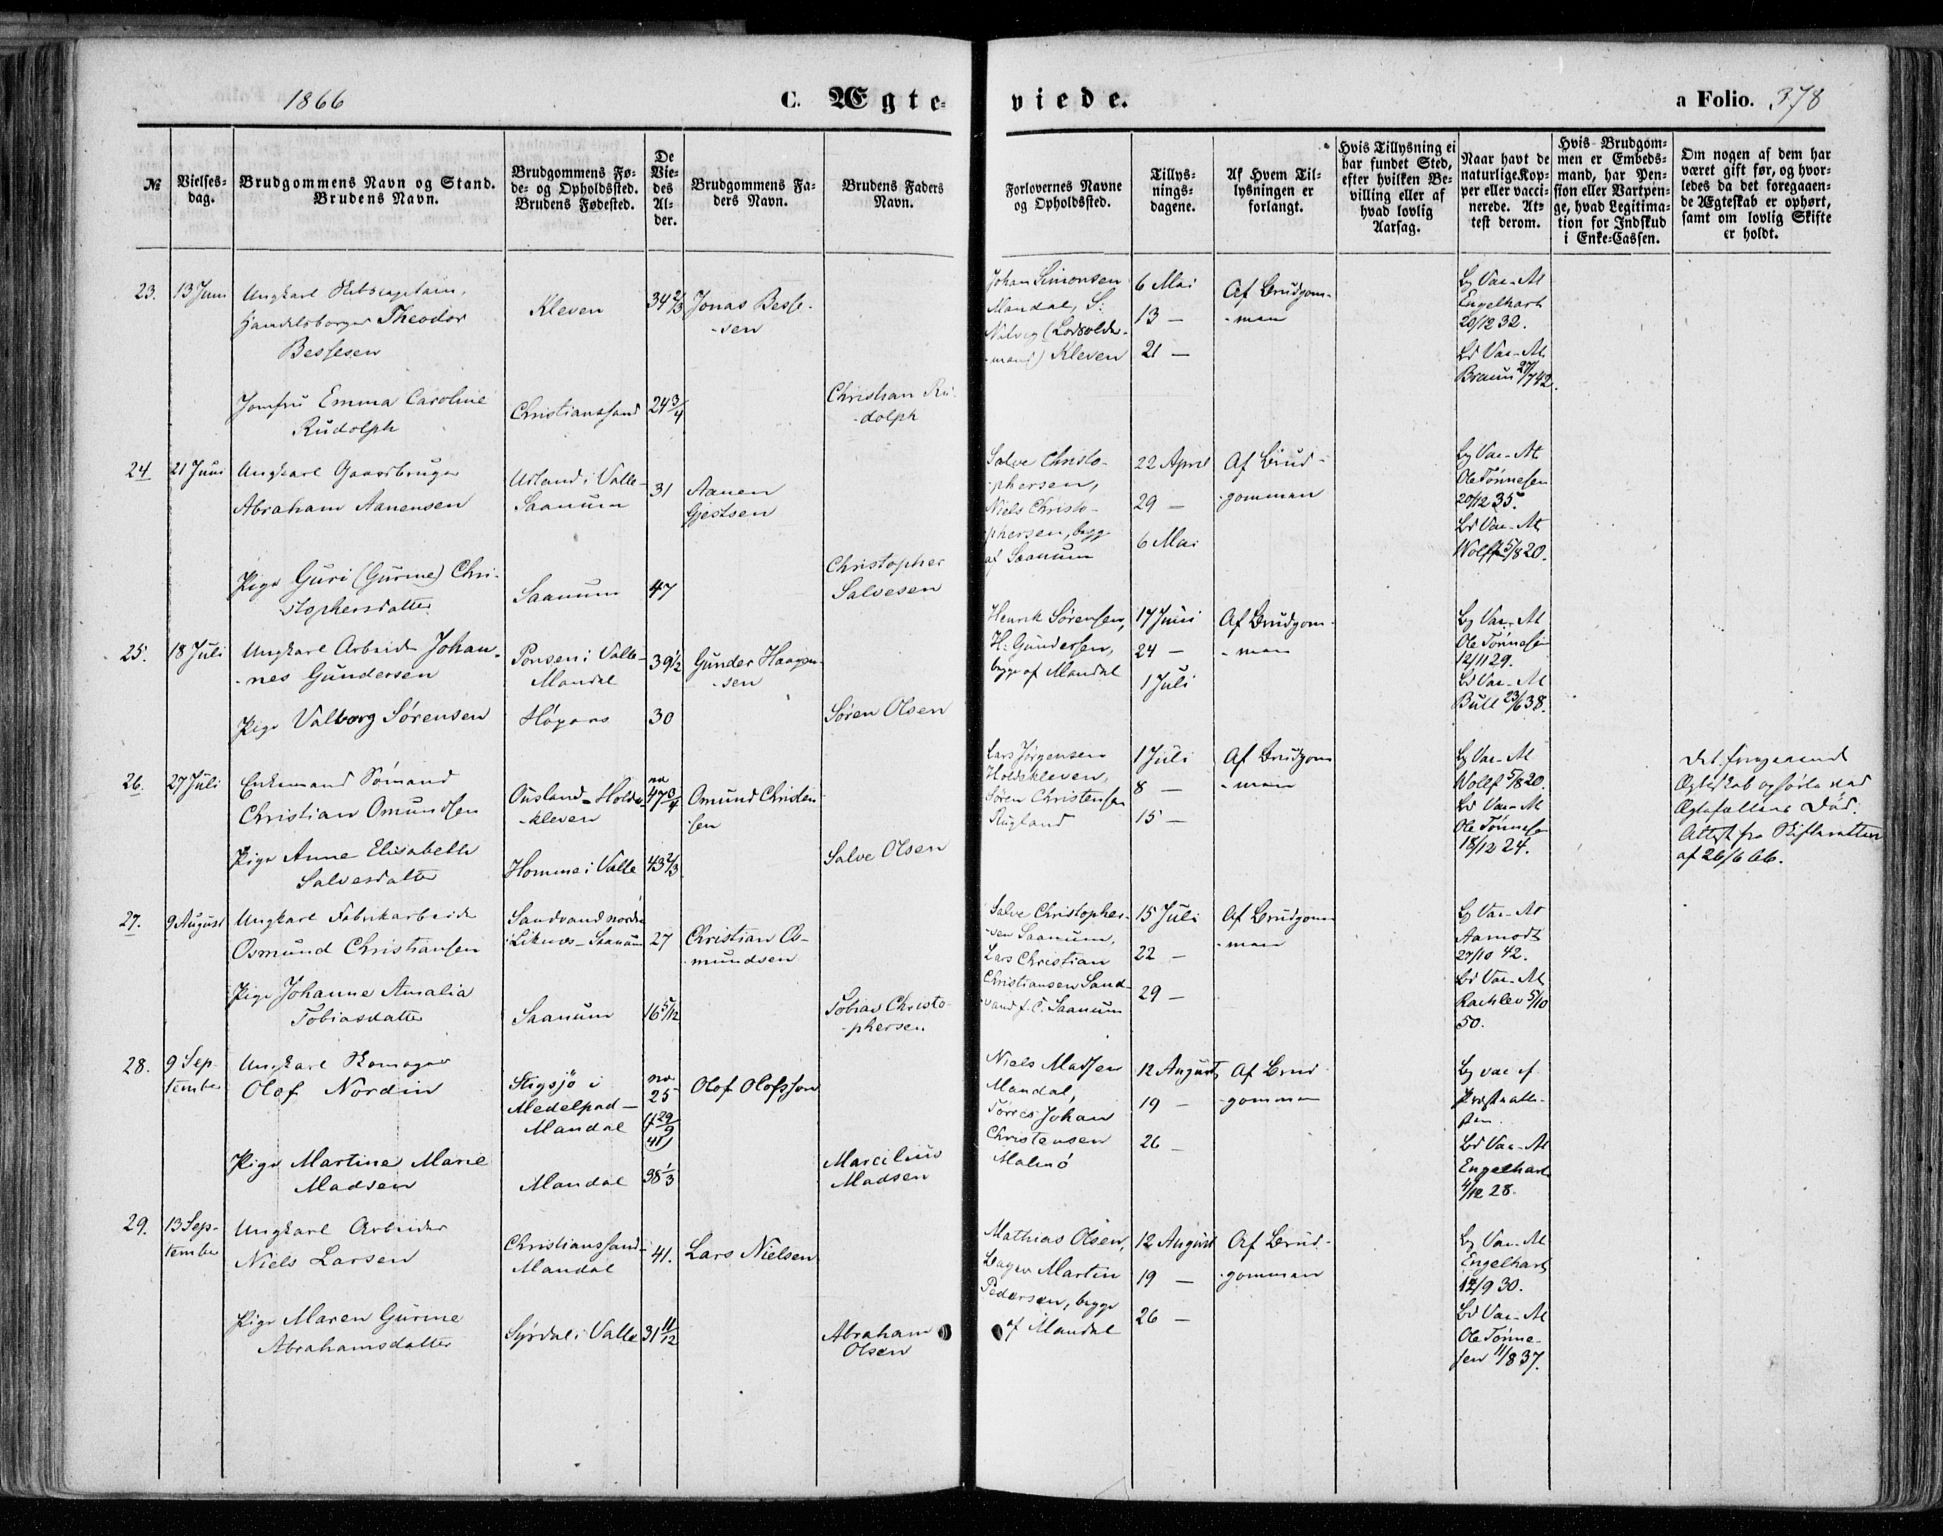 1866
C. Ægte-
viede.
a Folio. 378
№
Vielses-
dag.
Brudgommens Navn og Stand.
Brudens Navn.
Brudgommens Fø-
de- og Opholdssted.
Brudens Fødested.
De
Vie-
des
Al-
der.
Brudgommens Fa-
ders Navn.
Brudens Faders
Navn.
Forlovernes Navne
og Opholdssted.
Tillys-
nings-
dagene.
Af Hvem Til-
lysningen er
forlangt.
Hvis Tillysning ei
har fundet Sted,
efter hvilken Be-
villing eller af
hvad lovlig
Aarsag.
Naar havt de
naturlige Kop-
per eller vacci-
nerede. At-
test derom.
Hvis Brudgom-
men er Embeds-
mand, har Pen-
sion eller Vartpen-
ge, hvad Legitima-
tion for Indskud
i Enke-Cassen.
Om nogen af dem har
været gift før, og hvor-
ledes da det foregaaen-
de Ægteskab er ophørt,
samt om lovlig Skifte
er holdt.
23. 13 Juni
Ungkarl Skibscaptain,
Handelsborger Theodor
Bessesen
Kleven
34 2/3
Jonas Besse-
-sen
Johan Simonsen
Mandal, S:
Kleven
6 Mai
13 —
21 —
Af Brudgom-
-men
Bg Vac. At
Engelhart
20/12 32.
Bd Vac. At
Braun 27/7 42.
Jomfru Emma Caroline
Rudolph
Christianssand
24 3/4
Christian Ru-
-dolph
24 21 Juni
Ungkarl Gaardbruger
Abraham Aanensen
Usland i Valle-
Saanum
31
Aanen
Gjestsen
Salve Christo-
-phersen,
Niels Christo-
phersen, begge
af Saanum
22 April
29 —
6 Mai
Af Brud-
-gommen
Bg Vac. At
Ole Tønnesen
20/12 35.
Bd Vac. At
Wolff 5/8 20.
Pige Guri (Gurine) Chri-
stophersdatter
Saanum
47
Christopher
Salvesen
25. 18 Juli
Ungkarl Arbeider Johan-
-nes Gundersen
Ponsen i Valle-
Mandal
39 1/2
Gunder Haagen-
-sen
Henrik Sørensen,
H. Gundersen,
begge af Mandal
17 Juni
24 —
1 Juli
Af Brudgom-
-men
Bg Vac. At
Ole Tønnesen
12/11 29.
Bd Vac. At
Bull 23/6 38.
Pige Valborg Sørensen
30
Søren Olsen
26. 27 Juli
Enkemand Sømand
Christian Omundsen
Ousland-Holde-
-kleven
47 3/4
Omund Christen-
-sen
Lars Jørgensen
Holdekleven,
Søren Christensen
Rugland
1 Juli
8 —
15 —
Af Brudgom-
-men
Bg Vac. At
Wolff 5/8 20.
Bd Vac. At
Ole Tønnesen
18/12 24.
Det foregaaende
Ægteskab ophørte ved
Ægtefællens Død.
Attest fra Skifteretten
af 26/6 66.
Pige Anne Elisabeth
Salvesdatter
Homme i Valle
43 2/3
Salve Olsen
27. 9 August
Ungkarl Fabrikarbeider
Osmund Christiansen
Sandvand nordre
i Liknes-Saanum
27
Christian Os-
-mundsen
Salve Christopher-
-sen Saanum,
Lars Christian
Christiansen Sand-
vand f. T. Saanum
15 Juli
22 —
29 —
Af Brudgom-
-men
Bg Vac. At
Aamodt
27/10 42.
Bd Vac. At
5/10
50.
Pige Johanne Amalia
Tobiasdatter
Saanum
16 5/12
Tobias Christo-
-phersen
28. 9 Sep-
tember
Ungkarl
Olof Nordin
Stigsjö i
Medelpad-
Mandal
25
(f 29/9
41)
Olof Olofsson
Niels Madsen
Mandal,
Tørres Johan
Christensen
Malmø
12 August
19 —
26 —
Af Brud-
-gommen
Bg vac. ef
Præsteatte-
sten.
Bd Vac. At
Engelhart
4/12 28.
Pige Martine Marie
Madsen
Mandal
38 1/3
Marcelius
Madsen
29. 13 Sep-
tember
Ungkarl Arbeider
Niels Larsen
Christianssand-
Mandal
41.
Lars Nielsen
Mathias Olsen,
Bager Martin
Pedersen, begge
af Mandal
12 August
19 —
26 —
Af Brud-
-gommen
Bg Vac. At
Engelhart
12/9 30.
Bd Vac. At
Ole Tønne-
sen 11/8 37.
Pige Maren Gurine
Abrahamsdatter
Syrdal i Valle
31 11/12
Abraham
Olsen